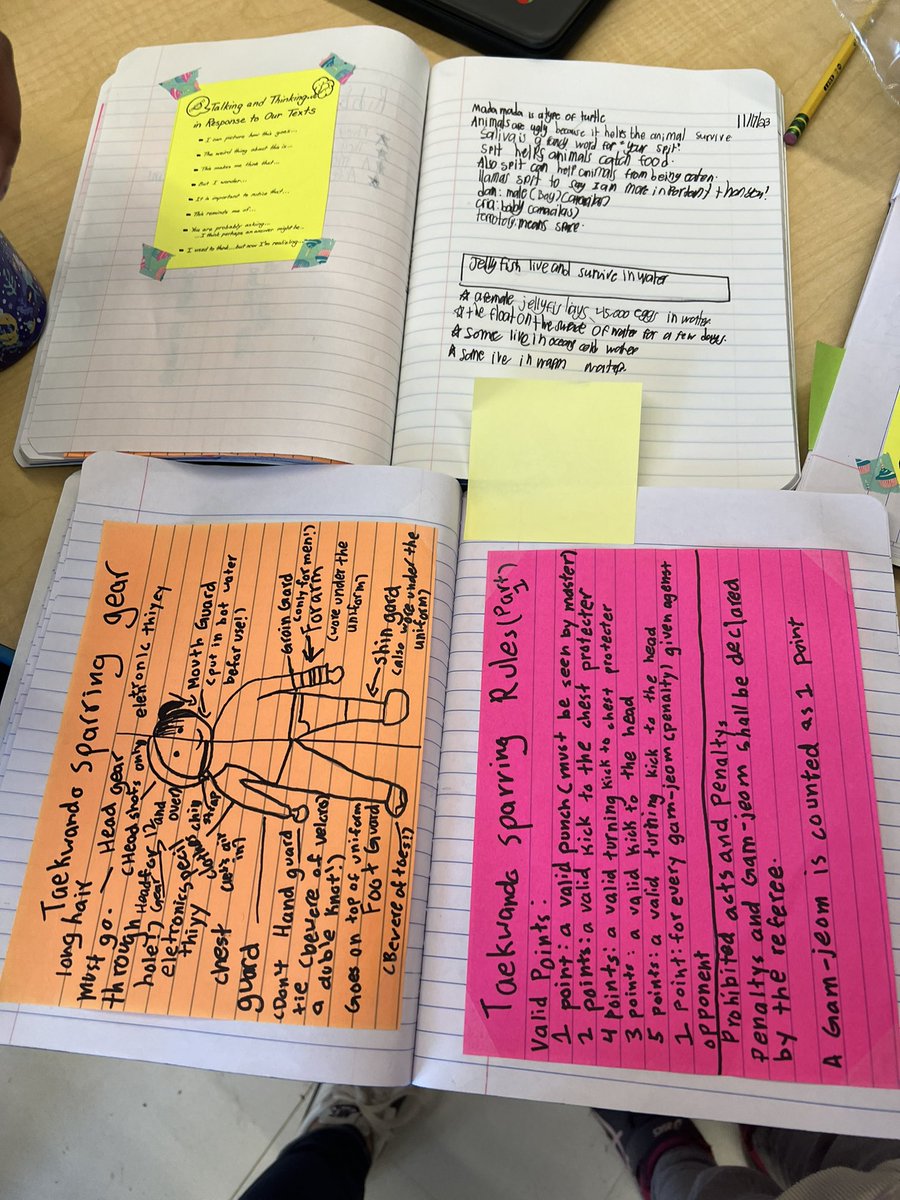 Talking and Thinking
in Response to Our Texts
- I can picture how this goes...
- The weird thing about this is...
- This makes me think that...
- But I wonder...
- It is important to notice that...
- This reminds me of...
- You are probably asking...
...I think perhaps an answer might be...
- I used to think...but now I'm realizing...
11/17/23
Mada mada is a type of turtle
Animals are ugly because it helps the animal survive
Saliva is a fancy word for "your spit"
spit helps animals catch food.
Also spit can help animals from being eaten.
llamas spit to say I am more
male (Boy)
baby
means space.
Jelly fish live and survive in water
☆ a female jellyfis lays 45,000 eggs in water
☆ the float on the of water for a few days.
☆ some live in ocean cold water
☆ some live in warm water.
Taekwando sparring gear
long hair
must go
through
hole!)
Head gear
(Head shots only
eletronic thiyey
Mouth Guard
(put in hot water
befor use!)
Groin Gaurd
(only for men!)
Forarm
(wore under the
uniform)
shin gard
(also wore under the
uniform)
chest
guard
Hand guard
(Don't
tie
a duble knot!)
Goes on top of uniform
Foot Guard
(Bevere of toes!)
Taekwando sparring Rules (Part 1)
Valid Points:
1 point: a valid punch (must be seen by master)
2 points: a valid kick to the chest protecter
4 points: a valid turning kick to chest protecter
3 points: a valid kick to the head
5 points: a valid turning kick to the head
1 point: for every gam-jeom (penalty) given against
opponent
Prohibited acts and Penalty
Penaltys and Gam-jeom shall be declared
by the referee.
A Gam-jeom is counted as 1 point